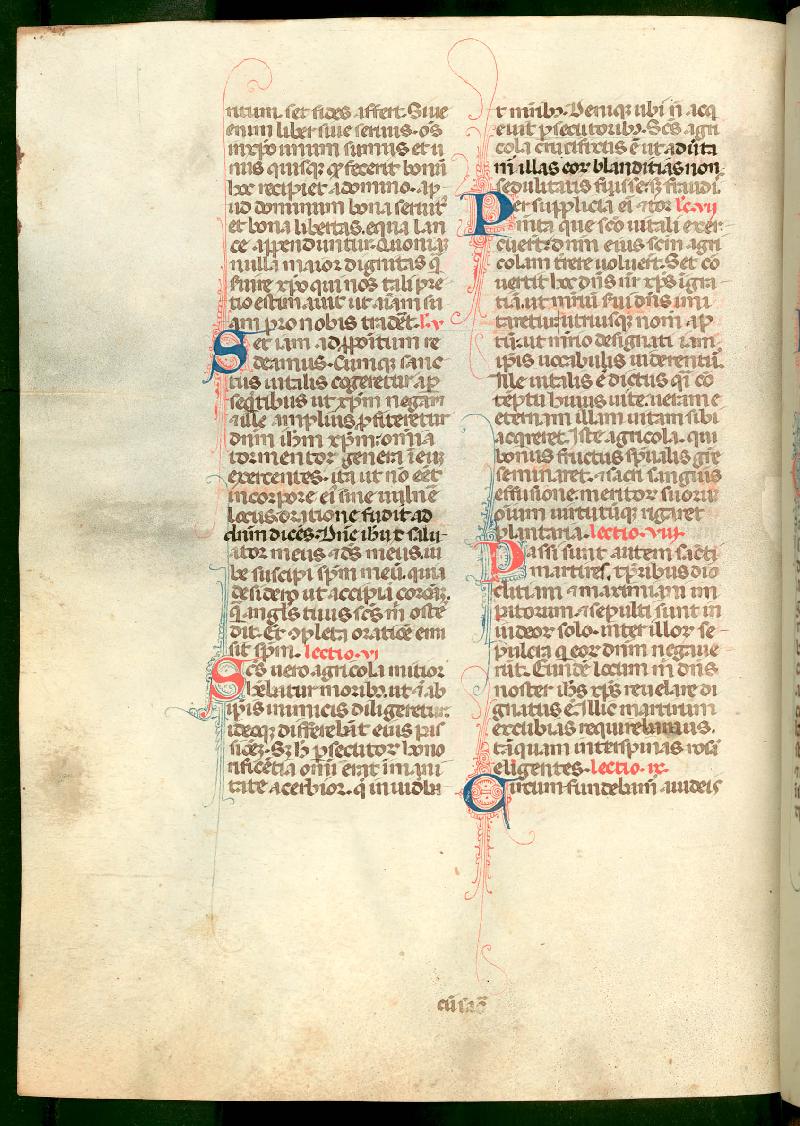 ritum. set fides affert. Siue
enim liber siue seruus. oĩs
in xp̃o unum sumus et u
nus quisq; q̃ fecerit bonũ
hoc recipiet a domino. ap
ud dominum bona seruit᷑
et bona libertas. equa lan
ce appenduntur. Quoniaʒ
nulla maior dignitas q̃
seruire xp̃o qui nos tali pre
tio estimauit ut aĩam su
am pro nobis tradẽt. l. v
Set iam ad ꝓpoitum re
deamus. Cumq; sanc
tus uitalis cogeretur a ꝑ
seq̃tibus ut xp̃m negaret
⁊ ille amplius ꝓfiteretur
dñm ih̃m xp̃m. omnia
tormentoꝝ genera ĩ eiꝰ
exercentes. ita ut nõ eẽt
in corpore eĩ sine uulnẽ
locus. orationẽ fudit ad
dñm dicẽs. Dñe ih̃u xp̃e salu
ator meus ⁊ ds̃ meus. iu
be suscipi sp̃m meũ. quia
desidero ut accipiã coronã.
q̃ ang̃ls tuus sc̃s m̃ ostẽ
dit. Et ꝯpleta oratiõe emi
sit sp̃m. lectio. vi
Scs̃ uero agricola mitioꝝ
hẽbatur moribꝫ. ut ⁊ ab
ip̃is inimicis diligeretur.
ideoq; differebãt eius pas
sionẽ. Sʒ h̃ ꝑsecutoꝝ hono
rificẽtia omĩ erat in mani
tate acerbior. q̃ inuideb̃
t miribꝫ. Deniq; ubi ñ acq
euit ꝑsecutoribꝫ. Sc̃s agri
cola crucifixus ẽ ut aduta
m̃ illas eoꝝ blanditias non
sedulitatis fuisse sʒ fraudi.
Per supplicia eĩ ⁊ toꝝ lc. vii
mẽta que sc̃o uitali exer
cuert. dñm eius sc̃m agri
colam trere uoluert. Set cõ
uertit hoc dñs ñr xp̃s ĩ gra
tiã. ut mr̃iũ sui dñs imi
taretur. utriusq; nom̃ ap
tũ. ut mr̃io designati iam
ip̃is uocabulis uiderentũ.
Ille uitalis ẽ dictus qi cõ
teptu huius uite. ueram ⁊
eternam illam uitam sibi
acq̃reret. Iste agricola. qui
bonus fructus sp̃ualis gr̃e
seminaret. ⁊ sacri sanguis
effusione. meritoꝝ suoꝝ
oĩum uirtutũq; rigaret
plantaria. lectio. viii.
Passi sunt autem sc̃i
martires. tẽpribus dio
clitiani ⁊ maximiani im
patorum. ⁊ sepulti sunt in
iudeoꝝ solo. inter illoꝝ se
pulcra q̃ eoꝝ dñm negaue
rũt. Eundẽ locum in dñs
noster ih̃s xp̃s reuelare di
gnatus ẽ. Illic martirum
exeubias requirebamus.
tãquam inter spinas rosã
eligentes. lectio. ix.
Circum fundebam̃ a iudeis
cũ sac̃